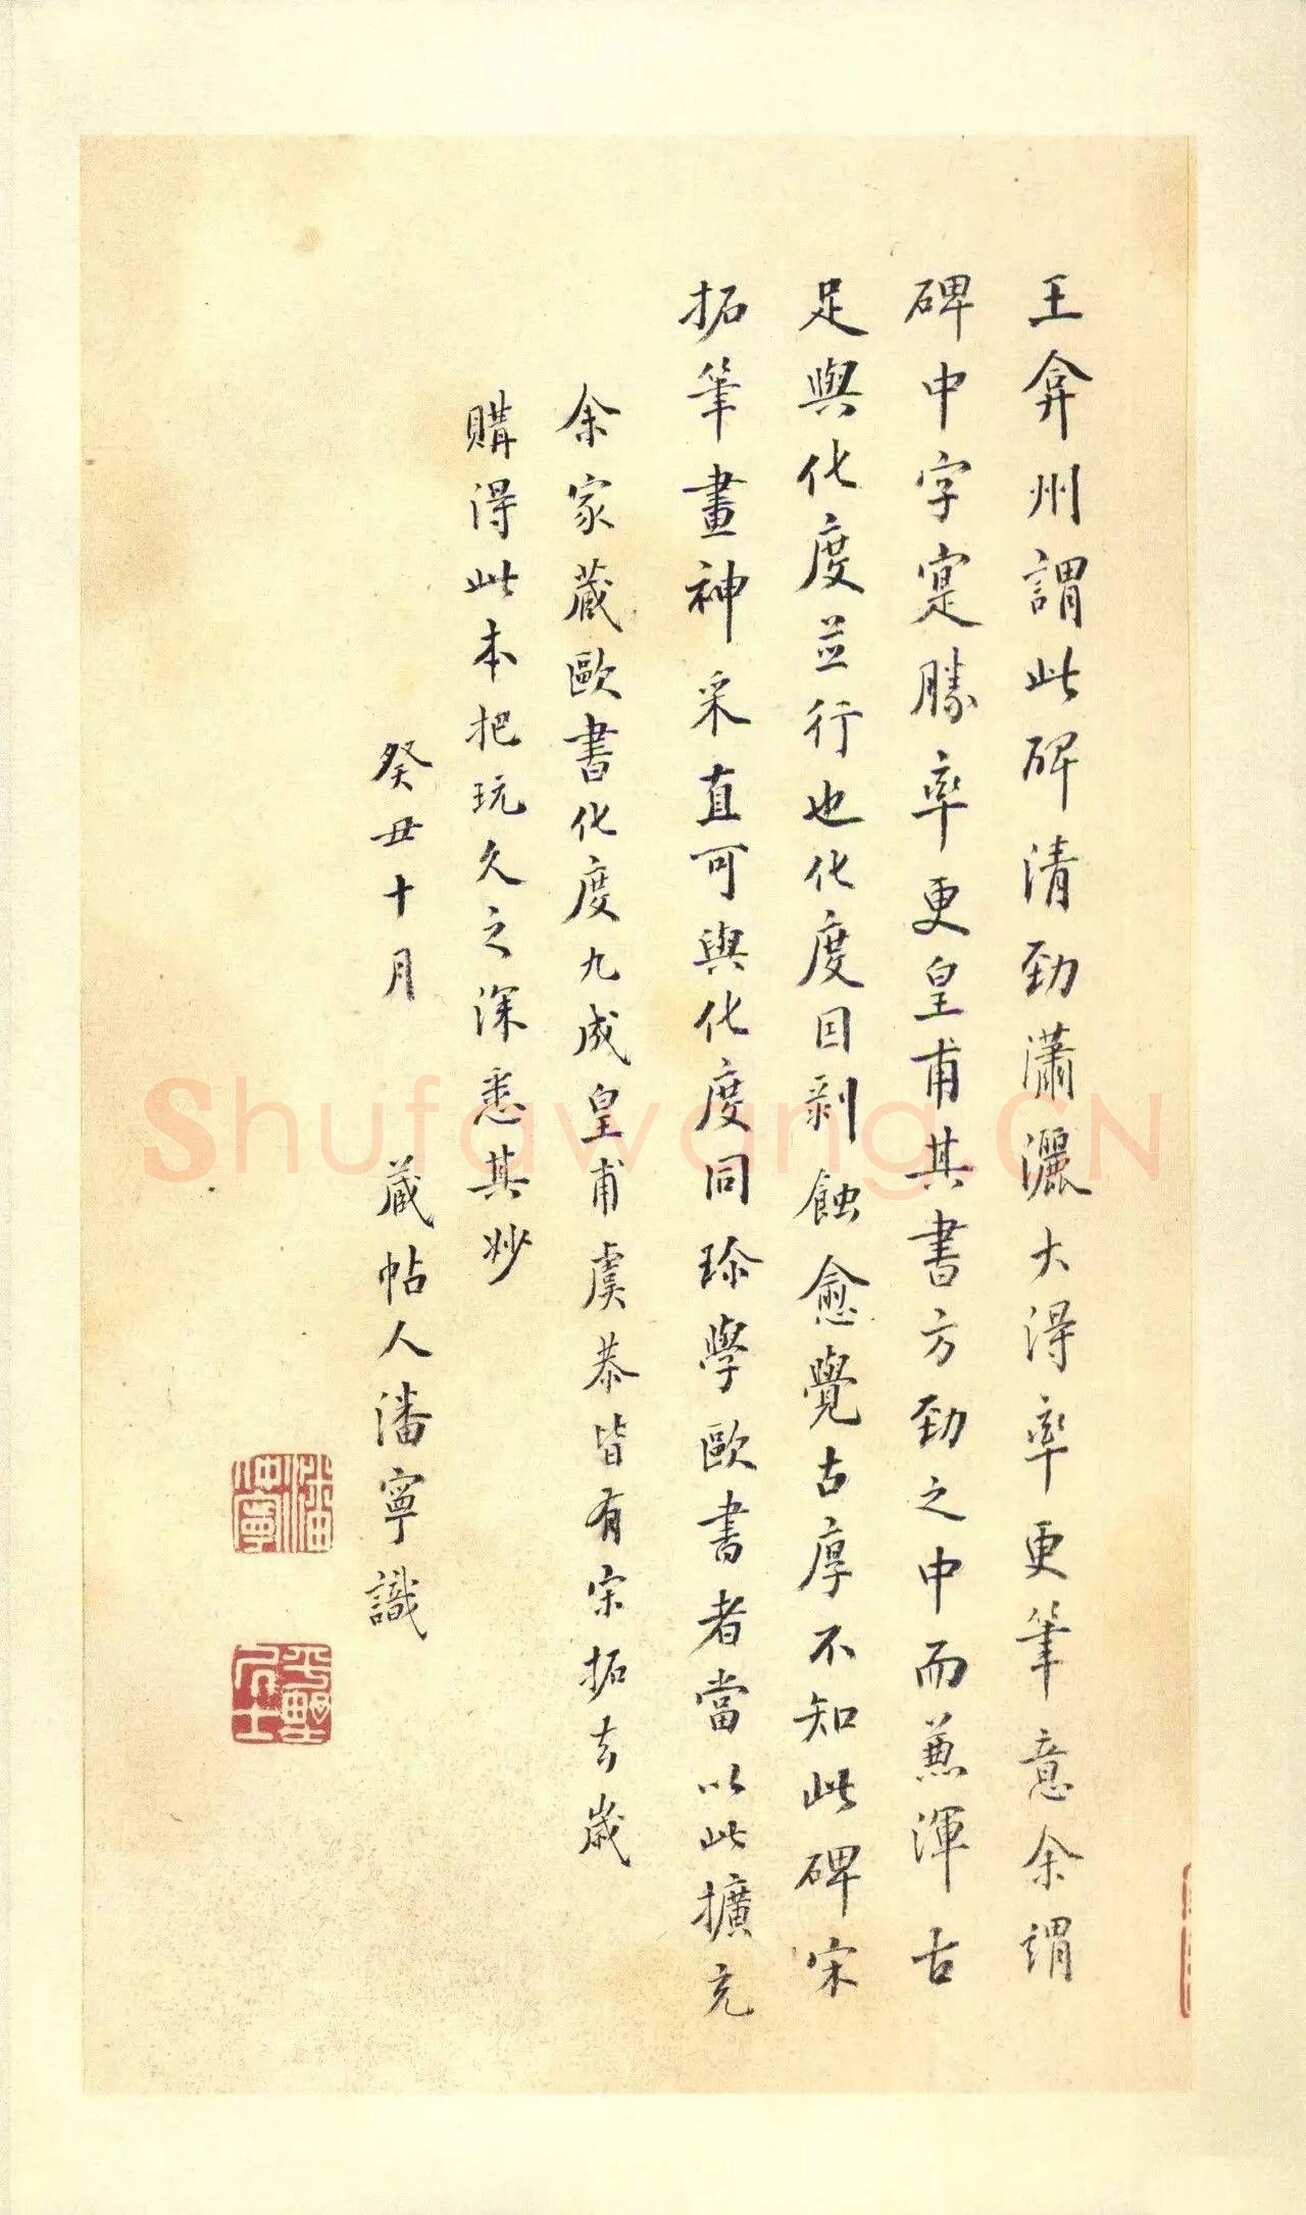 王弇州謂此碑清勁瀟灑大得率更筆意余謂
碑中字寔勝率更皇甫其書方勁之中而兼渾古
足與化度並行也化度因剝蝕愈覺古厚不知此碑宋
拓筆畫神采直可與化度同珍學歐書者當以此擴充
余家藏歐書化度九成皇甫虞恭皆有宋拓去歲
購得此本把玩久之深悉其妙
癸丑十月 藏帖人潘寧識
潘寧
居士
Shufawang.CN